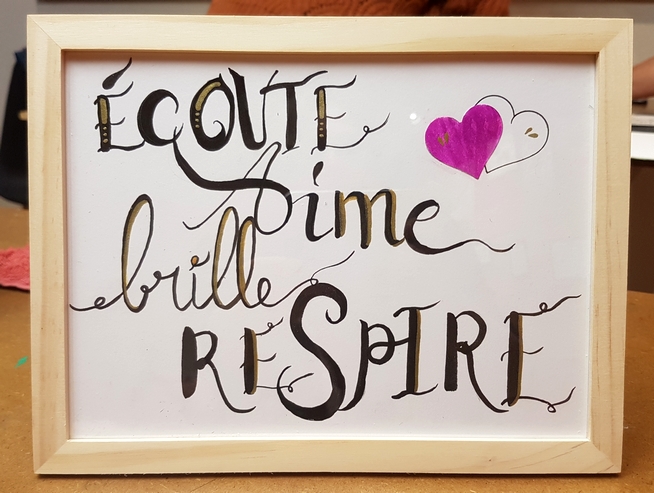 ÉCOUTE
Aime
brille
RESPIRE